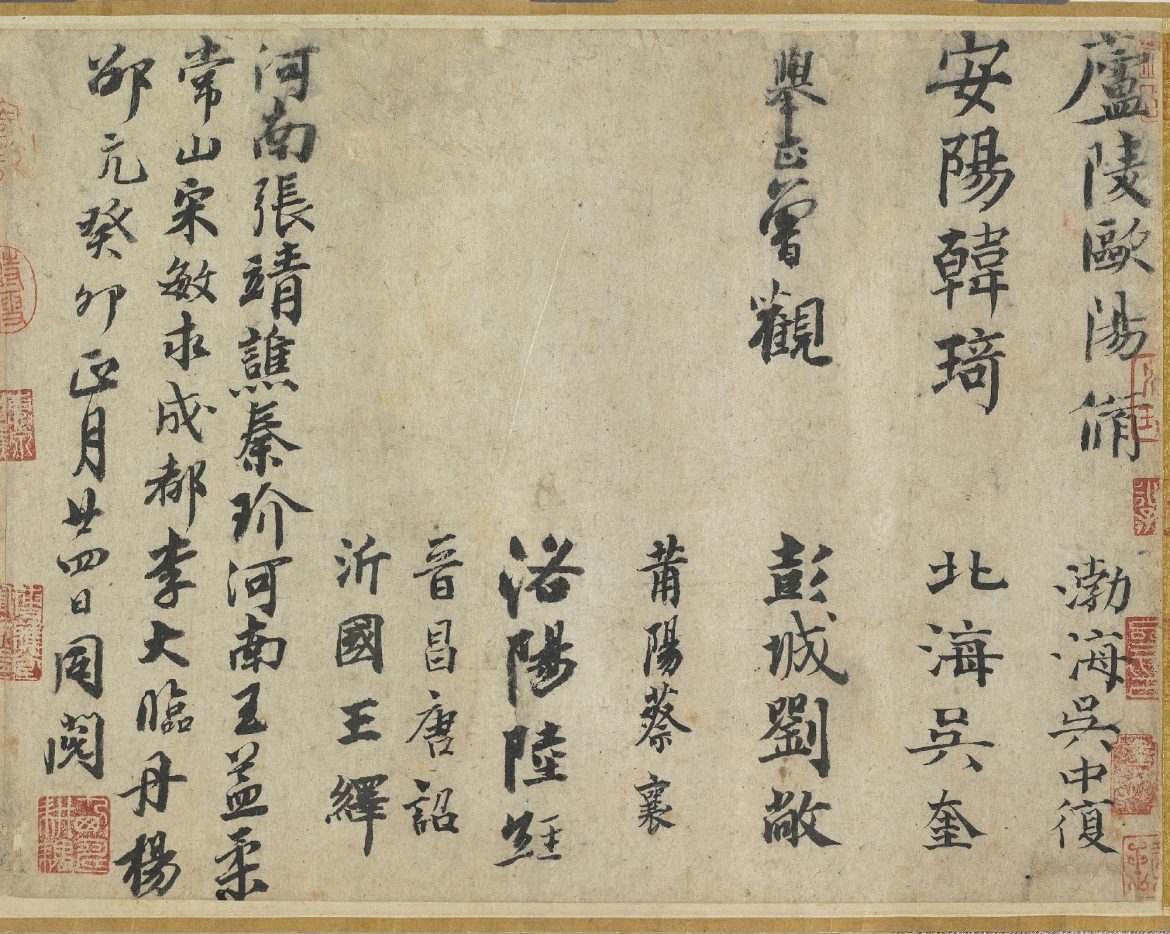 廬陵歐陽脩
渤海吳中復
安陽韓琦
北海吳奎
舉正曾觀
彭城劉敞
莆陽蔡襄
洛陽陸經
晉昌唐詔
沂國王繹
河南張靖譙秦玠河南王益柔
常山宋敏求成都李大臨丹楊
邵亢癸卯正月廿四日同閱